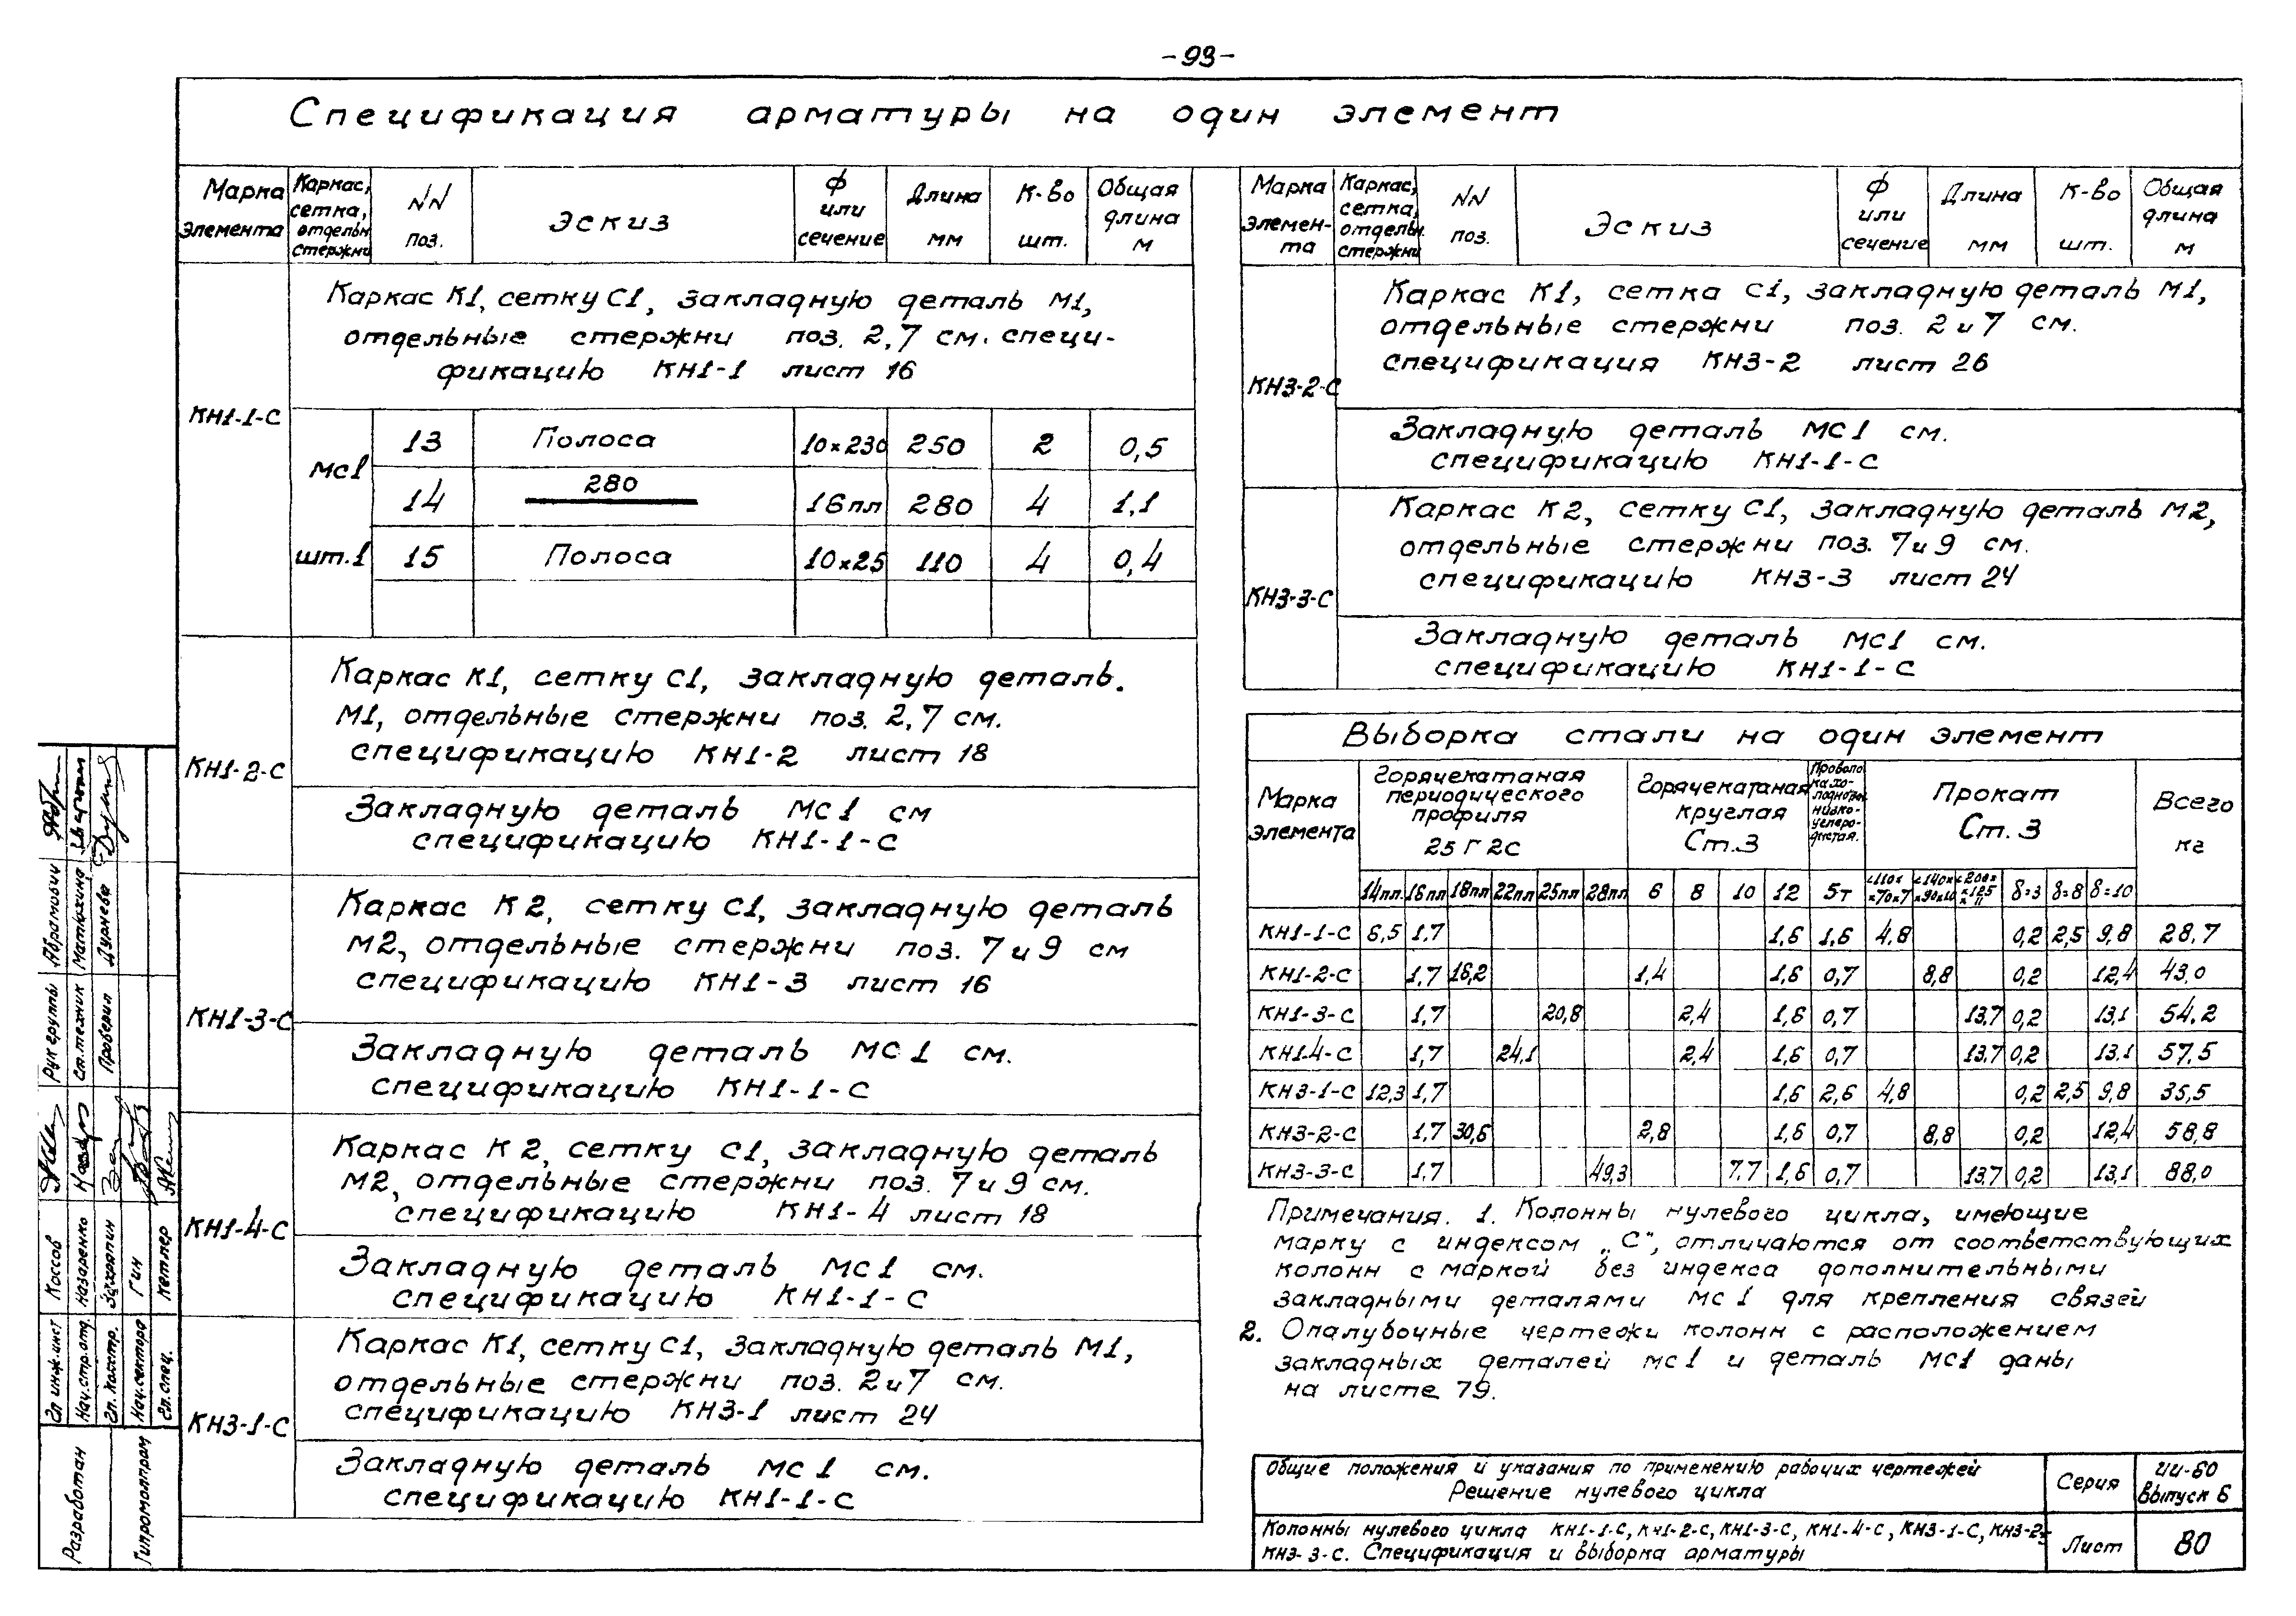 -93-
Спецификация арматуры на один элемент
Марка элемента | Каркас, сетка, отдельн. стержни | NN поз. | Эскиз | Ф или сечение | Длина мм | К-во шт. | Общая длина м
КН1-1-С
Каркас К1, сетку С1, закладную деталь М1,
отдельные стержни поз. 2,7 см. специ-
фикацию КН1-1 лист 16
мс1 шт.1
13 | Полоса | 10×230 | 250 | 2 | 0,5
14 | 280 | 16пл | 280 | 4 | 1,1
15 | Полоса | 10×25 | 110 | 4 | 0,4
КН1-2-С
Каркас К1, сетку С1, закладную деталь.
М1, отдельные стержни поз. 2,7 см.
спецификацию КН1-2 лист 18
Закладную деталь МС1 см
спецификацию КН1-1-С
КН1-3-С
Каркас К2, сетку С1, закладную деталь
М2, отдельные стержни поз. 7 и 9 см
спецификацию КН1-3 лист 16
Закладную деталь МС1 см.
спецификацию КН1-1-С
КН1-4-С
Каркас К2, сетку С1, закладную деталь
М2, отдельные стержни поз. 7 и 9 см.
спецификацию КН1-4 лист 18
Закладную деталь МС1 см.
спецификацию КН1-1-С
КН3-1-С
Каркас К1, сетку С1, закладную деталь М1,
отдельные стержни поз. 2 и 7 см.
спецификацию КН3-1 лист 24
Закладную деталь МС1 см.
спецификацию КН1-1-С
Марка элемен-та | Каркас, сетка, отдельн. стержни | NN поз. | Эскиз | Ф или сечение | Длина мм | К-во шт. | Общая длина м
КН3-2-С
Каркас К1, сетка С1, закладную деталь М1,
отдельные стержни поз. 2 и 7 см.
спецификация КН3-2 лист 26
Закладную деталь МС1 см.
спецификацию КН1-1-С
КН3-3-С
Каркас К2, сетку С1, закладную деталь М2,
отдельные стержни поз. 7 и 9 см.
спецификацию КН3-3 лист 24
Закладную деталь МС1 см.
спецификацию КН1-1-С
Выборка стали на один элемент
Марка элемента | Горячекатаная периодического профиля 25Г2С | Горячекатаная круглая Ст.3 | Проволока холоднотян. низкоуглеродистая. | Прокат Ст.3 | Всего кг
14пл. | 16пл | 18пл | 22пл | 25пл | 28пл | 6 | 8 | 10 | 12 | 5т | ∠110××70×7 | ∠140××90×10 | ∠200××125×11 | δ=3 | δ=8 | δ=10
КН1-1-С | 6,5 | 1.7 | 1,6 | 1,6 | 4,8 | 0,2 | 2,5 | 9,8 | 28,7
КН1-2-С | 1.7 | 16,2 | 1,4 | 1,6 | 0,7 | 8,8 | 0,2 | 12,4 | 43,0
КН1-3-С | 1.7 | 20,8 | 2,4 | 1,6 | 0,7 | 13,7 | 0,2 | 13,1 | 54,2
КН1-4-С | 1,7 | 24,1 | 2,4 | 1,6 | 0,7 | 13.7 | 0,2 | 13,1 | 57,5
КН3-1-С | 12,3 | 1,7 | 1,6 | 2,6 | 4,8 | 0,2 | 2,5 | 9,8 | 35,5
КН3-2-С | 1.7 | 30,6 | 2,8 | 1,6 | 0,7 | 8,8 | 0,2 | 12,4 | 58,8
КН3-3-С | 1.7 | 49,3 | 7.7 | 1,6 | 0,7 | 13.7 | 0,2 | 13,1 | 88,0
Примечания. 1. Колонны нулевого цикла, имеющие
марку с индексом „С", отличаются от соответствующих
колонн с маркой без индекса дополнительными
закладными деталями мс1 для крепления связей
2. Опалубочные чертежи колонн с расположением
закладных деталей мс1 и деталь МС1 даны
на листе 79.
Общие положения и указания по применению рабочих чертежей
Решение нулевого цикла
Серия
ИИ-60
Выпуск 6
Колонны нулевого цикла КН1-1-С, КН1-2-С, КН1-3-С, КН1-4-С, КН3-1-С, КН3-2-С
КН3-3-С. Спецификация и выборка арматуры
Лист
80
Рук группы Абрамович
Ст.техник Матюхина
Проверил Дурнева
Гл инж.инст Коссов
Нач.стр.отд. Назаренко
Гл. констр.
Нач.сектора Гин
Гл.спец. Кетлер
Разработан
Гипромолпром